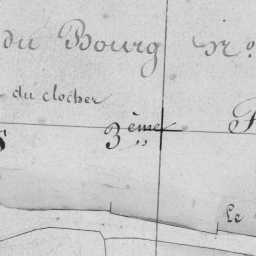 du Bourg N.o
du clocher
3ème
Le